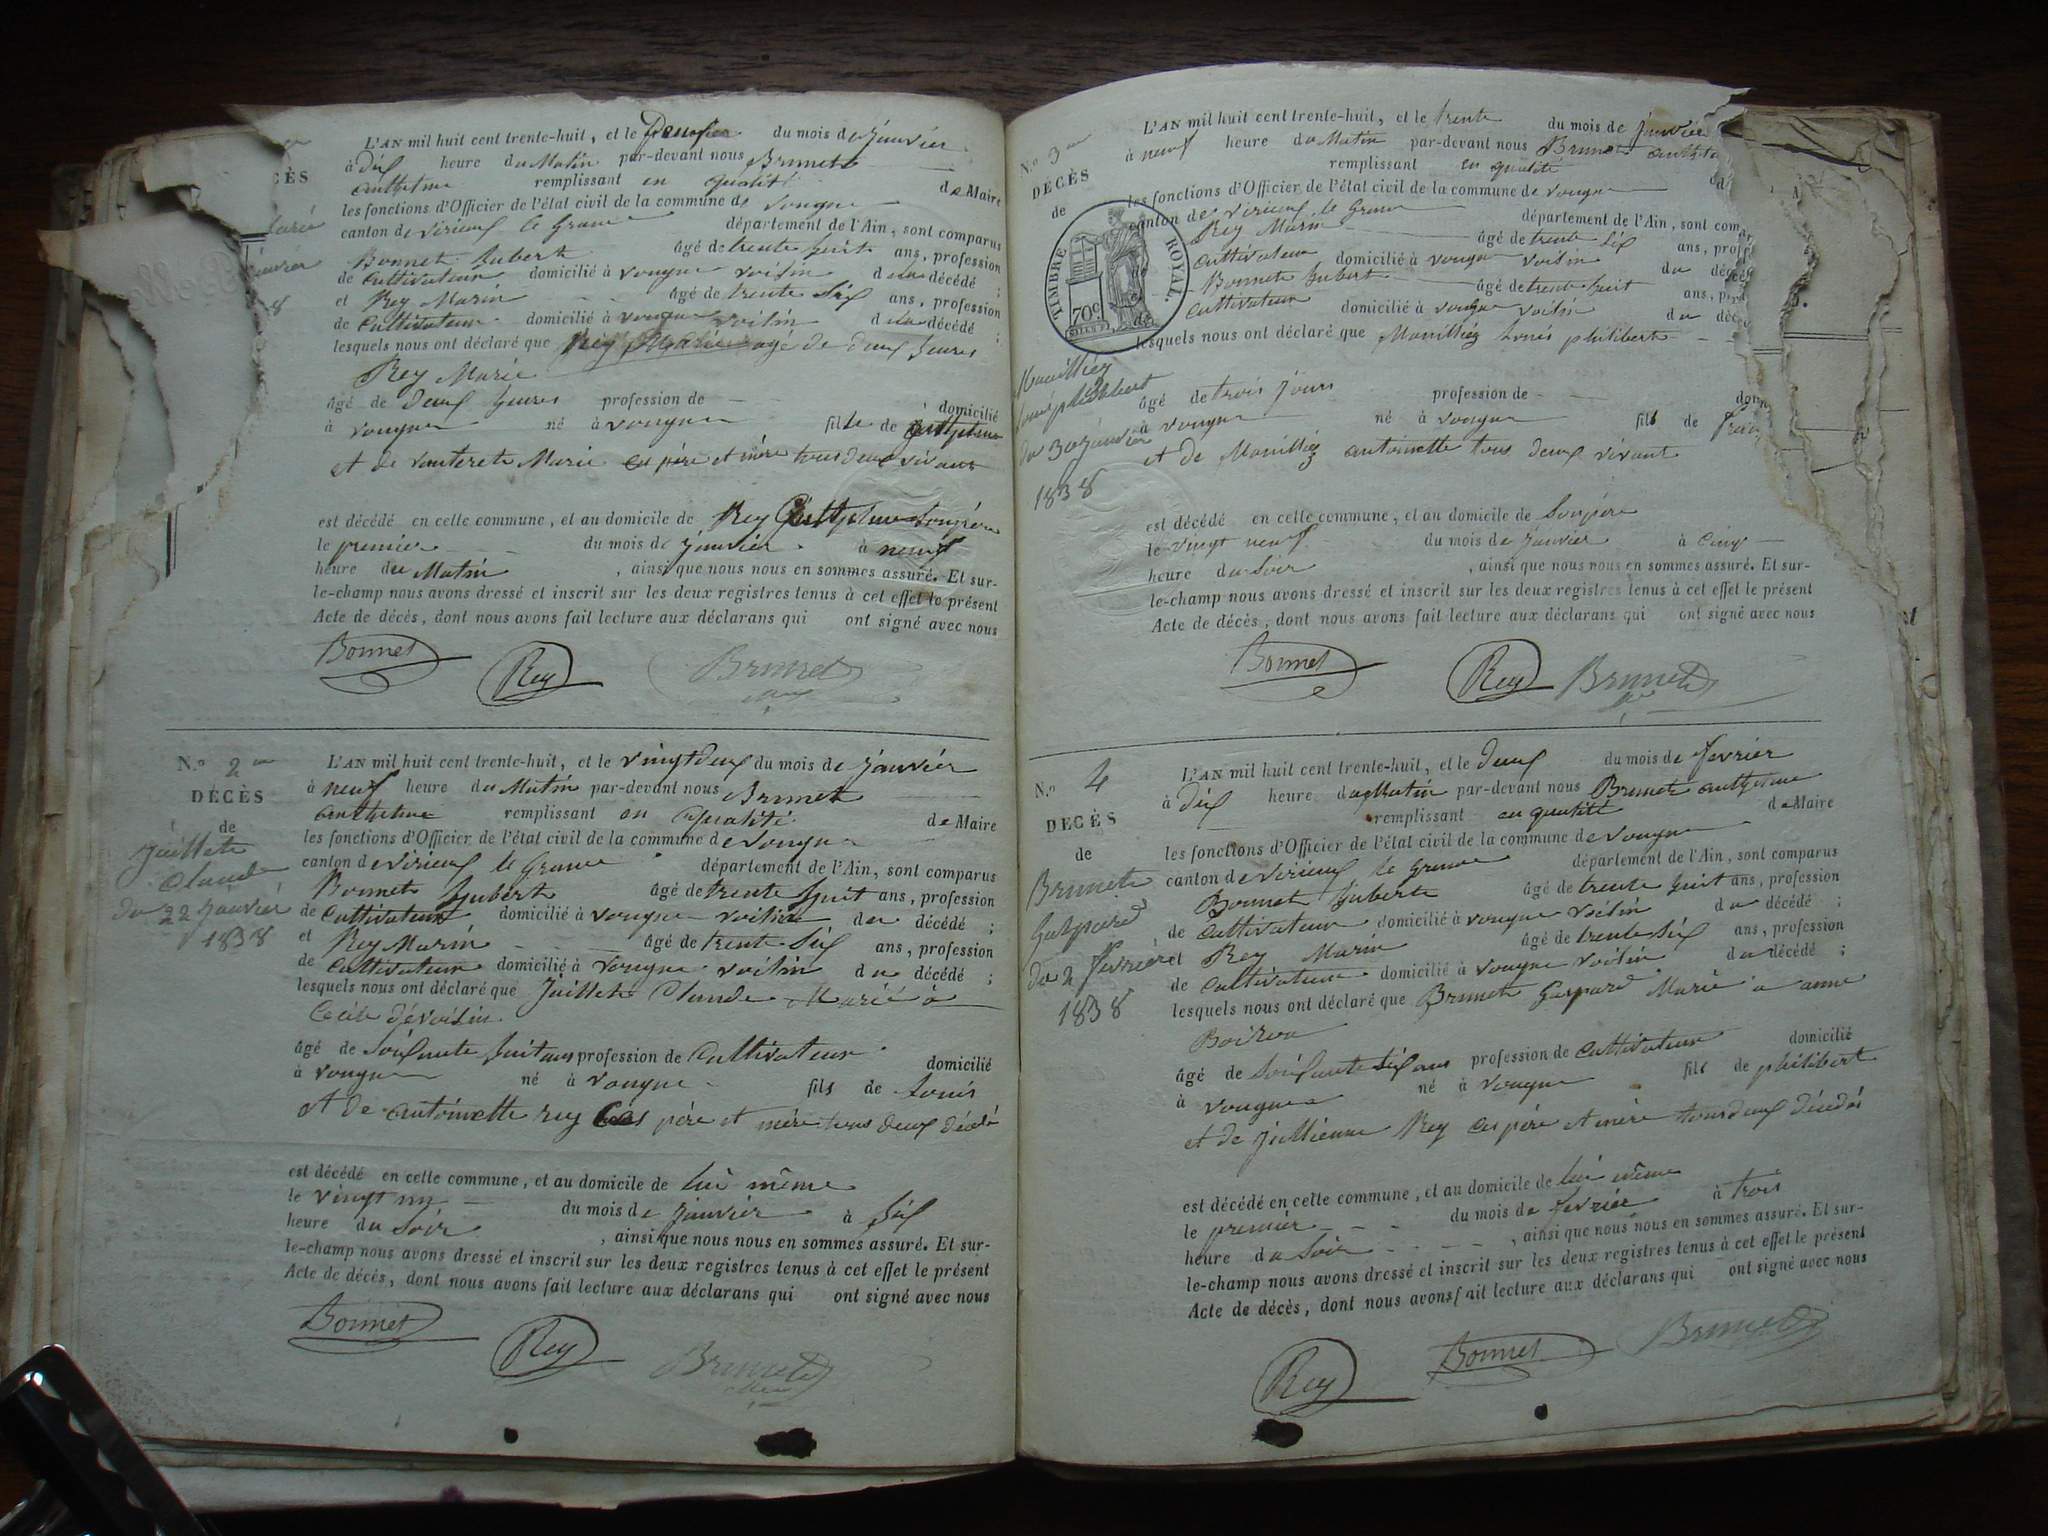 DÉCÈS
L'AN mil huit cent trente-huit, et le premier du mois de janvier
à dix heure du Matin par-devant nous Brunet
anthelme remplissant en qualité de Maire
les fonctions d'Officier de l'état civil de la commune de vongne
canton de virieux le Grand département de l'Ain, sont comparus
Bonnet hubert âgé de trente huit ans, profession
de Cultivateur domicilié à vongne voisin de la décédé ;
et Rey Marin âgé de trente Six ans, profession
de Cultivateur domicilié à vongne voisin de la décédé ;
lesquels nous ont déclaré que age de deux heures
Rey Marie
âgé de deux heures profession de domicilié
à vongne né à vongne fille de
et de Marie père et mère tous deux vivant
est décédé en cette commune, et au domicile de Rey
le premier du mois de janvier à neuf
heure du Matin , ainsi que nous nous en sommes assuré. Et sur-
le-champ nous avons dressé et inscrit sur les deux registres tenus à cet effet le présent
Acte de décès, dont nous avons fait lecture aux déclarans qui ont signé avec nous
Bonnet Rey Brunet
N.° 2
DÉCÈS
de
juillet
Claude
du 22 janvier
1838
L'AN mil huit cent trente-huit, et le vingt deux du mois de janvier
à neuf heure du Matin par-devant nous Brunet
anthelme remplissant en qualité de Maire
les fonctions d'Officier de l'état civil de la commune de vongne
canton de virieux le Grand département de l'Ain, sont comparus
Bonnet hubert âgé de trente huit ans, profession
de Cultivateur domicilié à vongne voisin du décédé ;
et Rey Marin âgé de trente Six ans, profession
de Cultivateur domicilié à vongne voisin du décédé ;
lesquels nous ont déclaré que juillet Claude Marié à
Cécile dévoisin
âgé de Soixante huit ans profession de Cultivateur domicilié
à vongne né à vongne fils de Louis
et de antoinette rey Ces père et mère tous deux décédé
est décédé en cette commune, et au domicile de lui même
le vingt un du mois de janvier à Six
heure du Soir , ainsi que nous nous en sommes assuré. Et sur-
le-champ nous avons dressé et inscrit sur les deux registres tenus à cet effet le présent
Acte de décès, dont nous avons fait lecture aux déclarans qui ont signé avec nous
Bonnet Rey Brunet
N.° 3
DÉCÈS
de
TIMBRE ROYAL
70c
Louis philibert
du 30 janvier
1838
L'AN mil huit cent trente-huit, et le trente du mois de janvier
à neuf heure du Matin par-devant nous Brunet
remplissant en qualité
les fonctions d'Officier de l'état civil de la commune de vongne
canton de virieux le Grand département de l'Ain, sont
Rey Marin âgé de trente Six ans,
Cultivateur domicilié à vongne voisin du
Bonnet hubert âgé de trente huit ans,
de Cultivateur domicilié à vongne voisin du
lesquels nous ont déclaré que Louis philibert
âgé de trois jours profession de
à vongne né à vongne fils de
et de antoinette tous deux vivant
est décédé en cette commune, et au domicile de Son père
le vingt neuf du mois de janvier à Cinq
heure du Soir , ainsi que nous nous en sommes assuré. Et sur-
le-champ nous avons dressé et inscrit sur les deux registres tenus à cet effet le présent
Acte de décès, dont nous avons fait lecture aux déclarans qui ont signé avec nous
Bonnet Rey Brunet
N.° 4
DÉCÈS
de
Brunet
Gaspard
du 2 fevrier
1838
L'AN mil huit cent trente-huit, et le deux du mois de fevrier
à dix heure du Matin par-devant nous Brunet anthelme
remplissant en qualité de Maire
les fonctions d'Officier de l'état civil de la commune de vongne
canton de virieux le Grand département de l'Ain, sont comparus
Bonnet huberte âgé de trente huit ans, profession
de Cultivateur domicilié à vongne voisin du décédé ;
et Rey Marin âgé de trente Six ans, profession
de Cultivateur domicilié à vongne voisin du décédé ;
lesquels nous ont déclaré que Brunet Gaspard Marié à anne
âgé de Soixante Six ans profession de Cultivateur domicilié
à vongne né à vongne fils de philibert
et de jullienne Rey Ces père et mère tous deux décédés
est décédé en cette commune, et au domicile de lui même
le premier du mois de fevrier à trois
heure du Soir , ainsi que nous nous en sommes assuré. Et sur-
le-champ nous avons dressé et inscrit sur les deux registres tenus à cet effet le présent
Acte de décès, dont nous avons fait lecture aux déclarans qui ont signé avec nous
Rey Bonnet Brunet